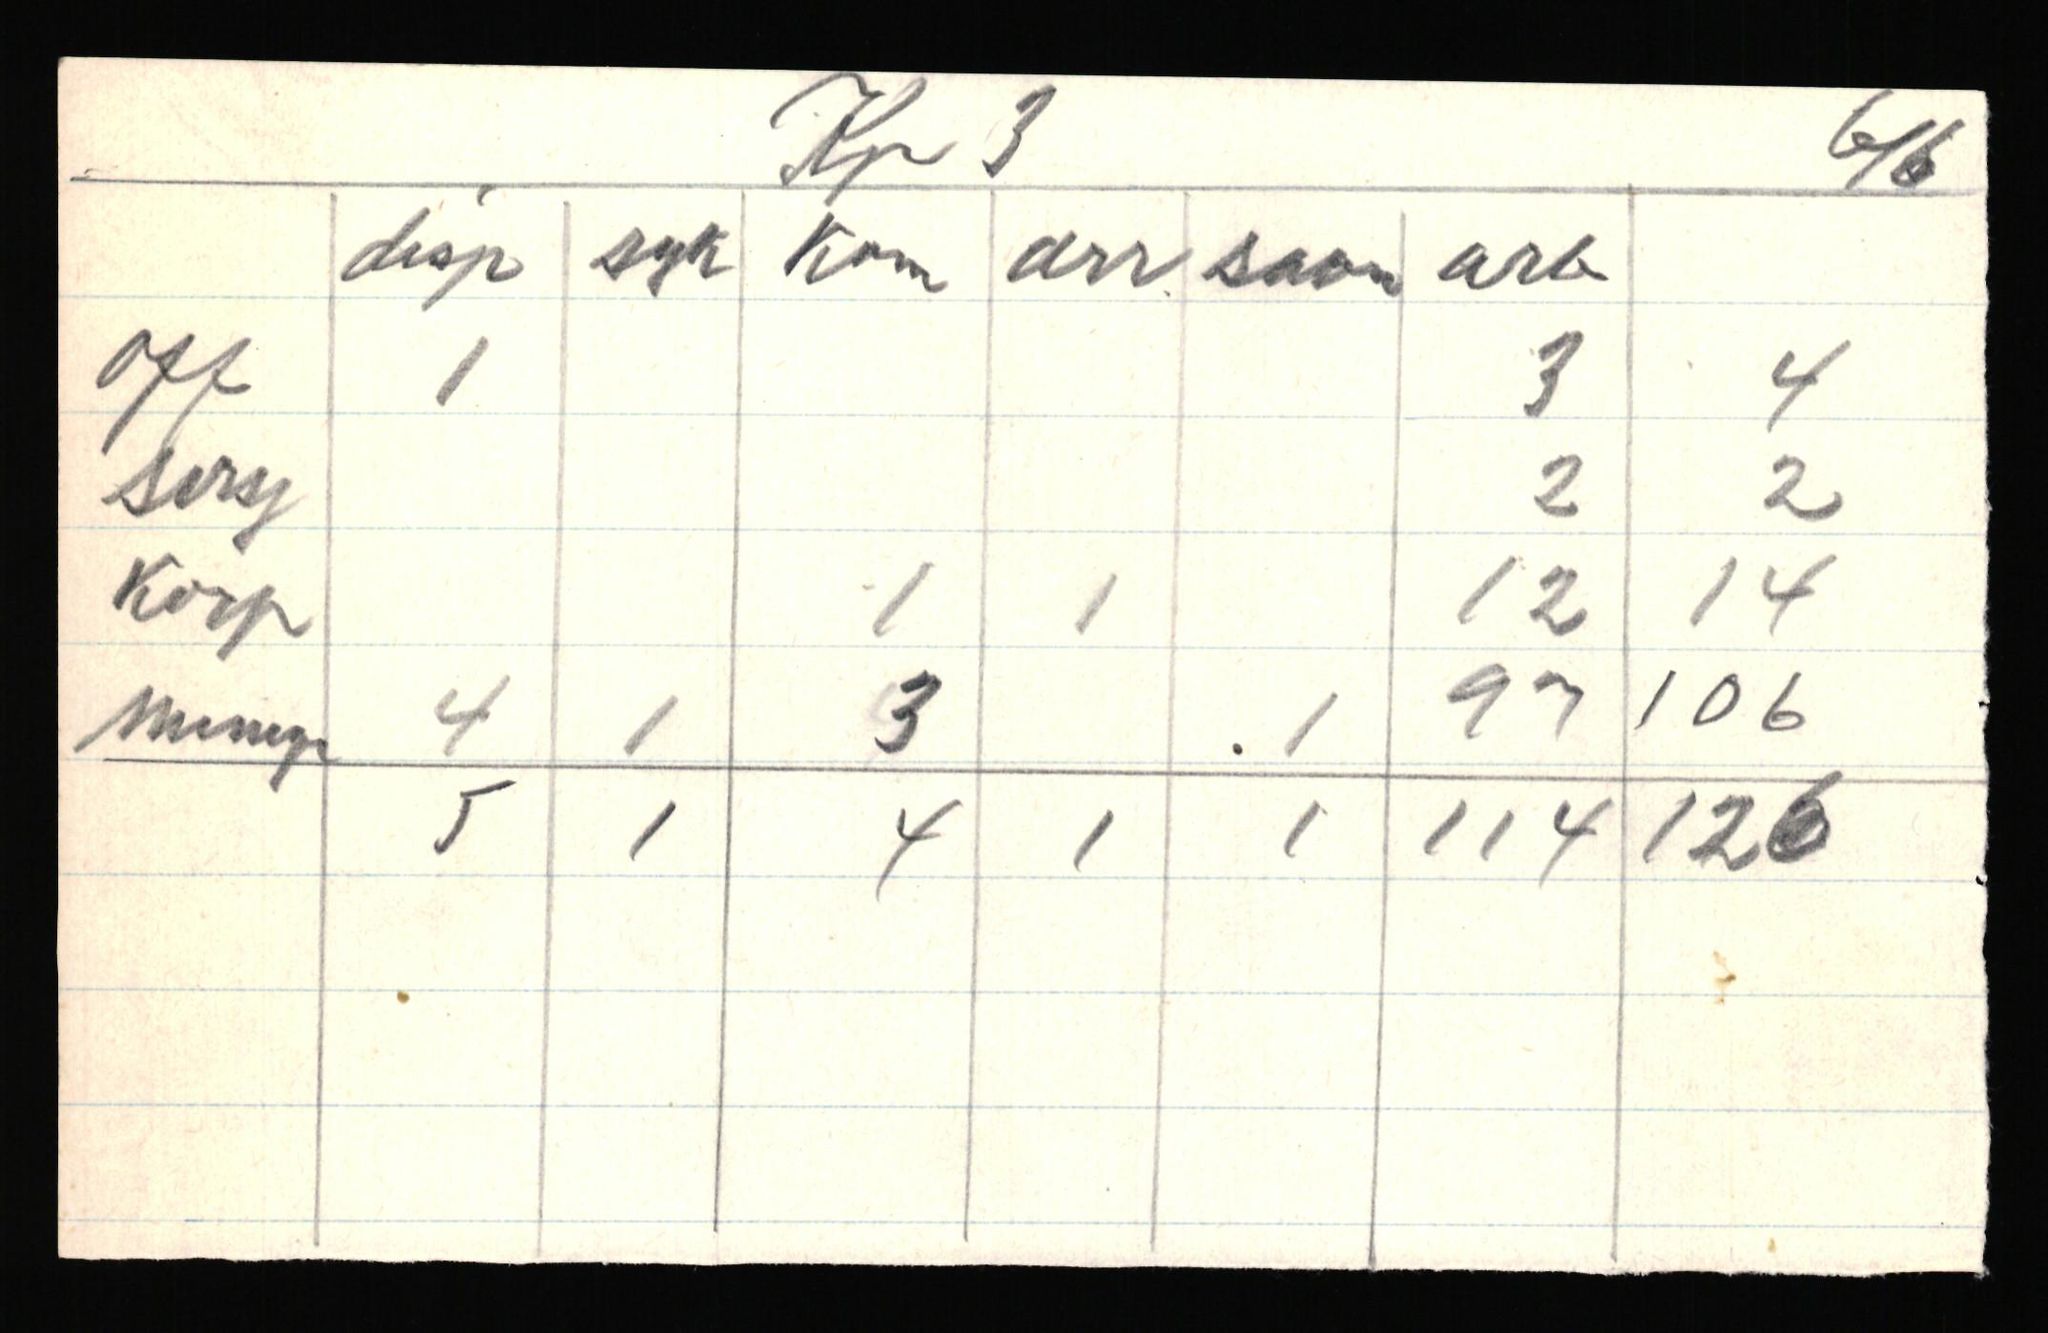 Kp 3 6/6
disp syk Kom arr savn arb
Off 1 3 4
Sersj 2 2
Korp 1 1 12 14
Menige 4 1 3 1 97 106
5 1 4 1 1 114 126